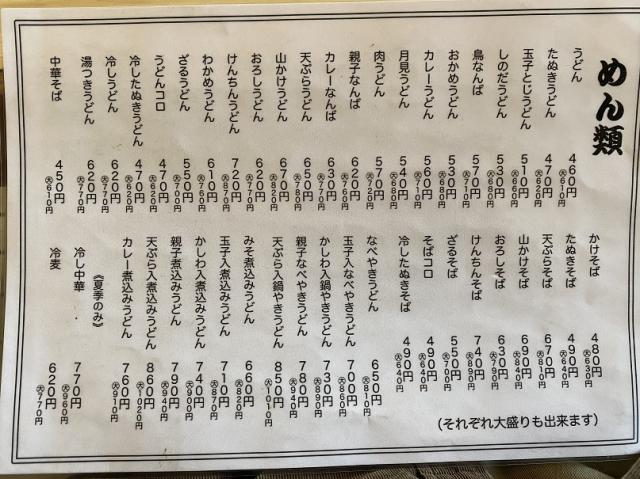 めん類
うどん 460円 (大)610円
たぬきうどん 470円 (大)620円
玉子とじうどん 510円 (大)660円
しのだうどん 530円 (大)680円
鳥なんば 570円 (大)710円
おかめうどん 530円 (大)680円
カレーうどん 560円 (大)710円
月見うどん 540円 (大)680円
肉うどん 570円 (大)720円
親子なんば 620円 (大)760円
カレーなんば 630円 (大)770円
天ぷらうどん 650円 (大)780円
山かけうどん 670円 (大)820円
おろしうどん 620円 (大)770円
けんちんうどん 720円 (大)870円
わかめうどん 610円 (大)760円
ざるうどん 550円 (大)700円
うどんコロ 470円 (大)620円
冷したぬきうどん 470円 (大)620円
冷しうどん 620円 (大)770円
湯つきうどん 620円 (大)770円
中華そば 450円 (大)610円
かけそば 480円 (大)630円
たぬきそば 490円 (大)610円
天ぷらそば 670円 (大)810円
山かけそば 690円 (大)840円
おろしそば 630円 (大)780円
けんちんそば 740円 (大)890円
ざるそば 550円 (大)700円
そばコロ 490円 (大)640円
冷したぬきそば 490円 (大)640円
なべやきうどん 650円 (大)810円
玉子入なべやきうどん 700円 (大)860円
かしわ入鍋やきうどん 730円 (大)890円
親子なべやきうどん 780円 (大)940円
天ぷら入鍋やきうどん 850円 (大)1010円
みそ煮込みうどん 660円 (大)820円
玉子入煮込みうどん 710円 (大)870円
かしわ入煮込みうどん 740円 (大)900円
親子煮込みうどん 790円 (大)940円
天ぷら入煮込みうどん 860円 (大)1020円
カレー煮込みうどん 760円 (大)910円
《夏季のみ》
冷し中華 770円 (大)960円
冷麦 620円 (大)770円
(それぞれ大盛りも出来ます)